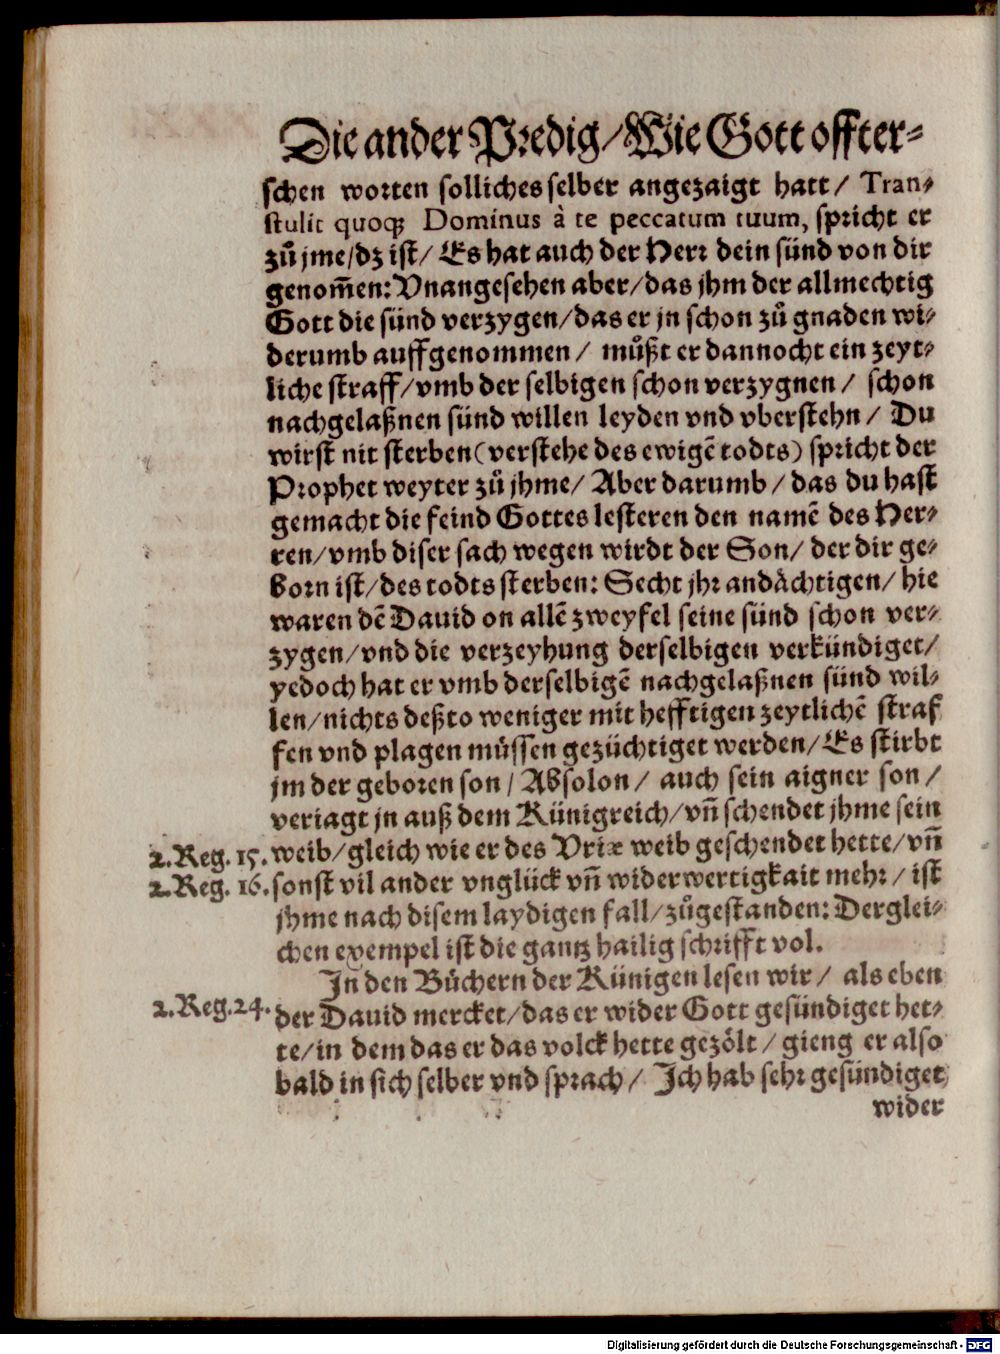 Die ander Predig/Wie Gott offter⸗
schen worten solliches selber angezaigt hatt/ Tran⸗
stulit quoqꝫ Dominus à te peccatum tuum, spricht er
zů jme/dz ist/ Es hat auch der Herr dein sünd von dir
genom̄en: Vnangesehen aber/das jhm der allmechtig
Gott die sünd verzygen/das er jn schon zů gnaden wi⸗
derumb auffgenommen/ můßt er dannocht ein zeyt⸗
liche straff/vmb der selbigen schon verzygnen/ schon
nachgelaßnen sünd willen leyden vnd vberstehn/ Du
wirst nit sterben (verstehe des ewigē todts) spricht der
Prophet weyter zů jhme/ Aber darumb/das du hast
gemacht die feind Gottes lesteren den namē des Her⸗
ren/vmb diser sach wegen wirdt der Son/ der dir ge⸗
born ist/des todts sterben: Secht jhr andächtigen/ hie
waren dē Dauid on allē zweyfel seine sünd schon ver⸗
zygen/vnd die verzeyhung derselbigen verkündiget/
yedoch hat er vmb derselbigē nachgelaßnen sünd wil⸗
len/nichts deßto weniger mit hefftigen zeytlichē straf
fen vnd plagen müssen gezüchtiget werden/Es stirbt
jm der geboren son/Absolon/ auch sein aigner son/
veriagt jn auß dem Künigreich/vn̄ schendet jhme sein
2.Reg. 15. weib/gleich wie er des Vriæ weib geschendet hette/vn̄
2.Reg. 16. sonst vil ander vnglück vn̄ widerwertigkait mehr/ ist
jhme nach disem laydigen fall/zůgestanden: Derglei⸗
chen exempel ist die gantz hailig schrifft vol.
In den Büchern der Künigen lesen wir/ als eben
2.Reg.24. der Dauid mercket/das er wider Gott gesündiget het⸗
te/in dem das er das volck hette gezölt/ gieng er also
bald in sich selber vnd sprach/ Ich hab sehr gesündiget
wider
Digitalisierung gefördert durch die Deutsche Forschungsgemeinschaft - DFG